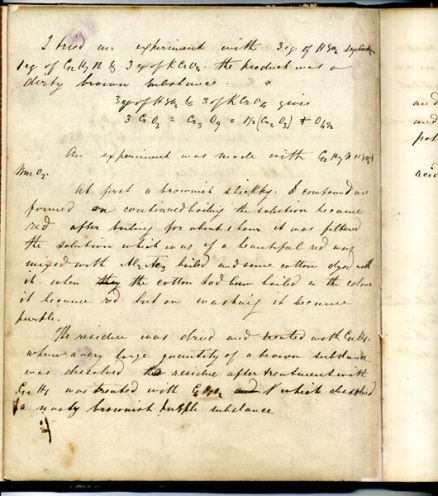 I tried an experiment with 3 eq of HSO4
1 eq of C12H7N & 3 eq of KCrO4. the product was a
dirty brown substance
3 eq of HSO4 & 3 of KCrO4 gives
3 CrO3 = Cr3 O9 = 1½ (Cr2 O3) + O4½
An experiment was made with C12H7N HSO4
MnO2.
At first a brownish compound was
formed on continued boiling the solution became
red after boiling for about 1 hour it was filtered
the solution which was of a beautiful red was
mixed with boiled and some cotton dyed with
it when the cotton had been boiled in the colour
it became red but on washing it became
purple.
The residue was dried and treated with
when a very large quantity of a brown substance
was dissolved the residue after treatment with
was treated with and which dissolved
a nasty brownish purple substance